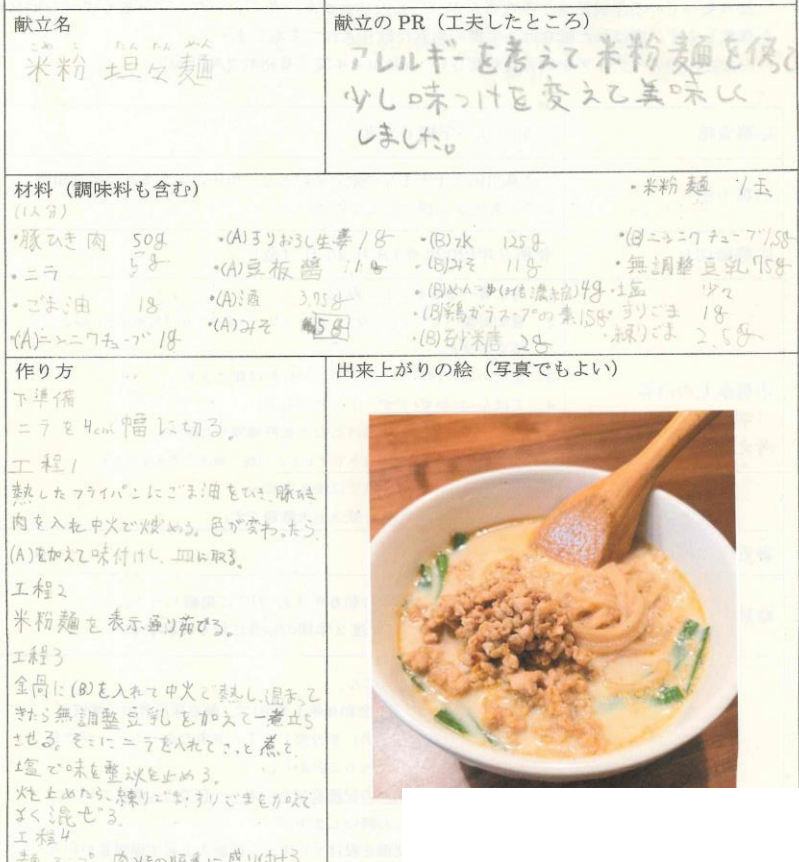 献立名
こめ こ たん たん めん
米粉 坦々麺
献立の PR（工夫したところ）
アレルギーを考えて米粉麺を使って
少し味つけを変えて美味しく
しました。
材料（調味料も含む）
(1人分)
・豚ひき肉 50g
・ニラ 5g
・ごま油 1g
・(A)ニンニクチューブ 1g
・(A)すりおろし生姜 1g
・(A)豆板醤 11g
・(A)酒 3.75g
・(A)みそ 5g
・(B)水 125g
・(B)みそ 11g
・(B)めんつゆ(4倍濃縮)4g
・(B)鶏ガラスープの素1.5g
・(B)砂糖 2g
・米粉麺 1玉
・(B)ニンニクチューブ1.5g
・無調整豆乳75g
・塩 少々
・すりごま 1g
・練りごま 2.5g
作り方
下準備
ニラを4cm幅に切る。
工程1
熱したフライパンにごま油をひき、豚ひき
肉を入れ中火で炒める。色が変わったら
(A)を加えて味付けし、皿に取る。
工程2
米粉麺を表示通り茹でる。
工程3
金咼に(B)を入れて中火で熱し、温まって
きたら無調整豆乳を加えて一煮立ち
させる。そこにニラを入れてさっと煮て
塩で味を整え火を止める。
火を止めたら、練りごま・すりごまを加えて
よく混ぜる。
工程4
出来上がりの絵（写真でもよい）